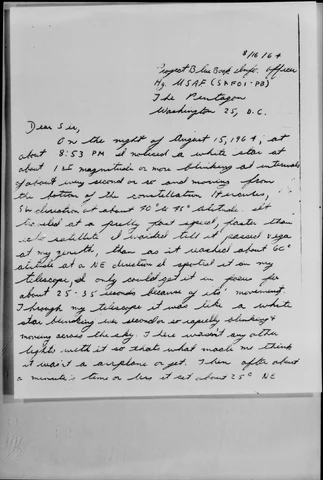 8/16/64
Project Blue Book Info. Officer
Hq. USAF (SAFOI-PB)
The Pentagon
Washington 25, D.C.
Dear Sir,
On the night of August 15, 1964, at
about 8:53 PM I noticed a white star at
about 1st magnitude or more blinking at intervals
of about every second or so and moving from
the bottom of the constellation Hercules,
SW direction at about 70° to 75° altitude. It
traveled at a pretty fast speed, faster than
echo satellite. I waited till it passed vega
at my zenith, then as it reached about 60°
altitude at a NE direction I spotted it on my
telescope, I only could get it in focus for
about 25-35 seconds because of its' movement.
Through my telescope it was like a white
star blinking every second or so rapidly blinking &
moving across the sky. There wasn't any other
lights with it so thats what made me think
it wasn't a airplane or jet. Then after about
a minute's time or less it set about 25° NE